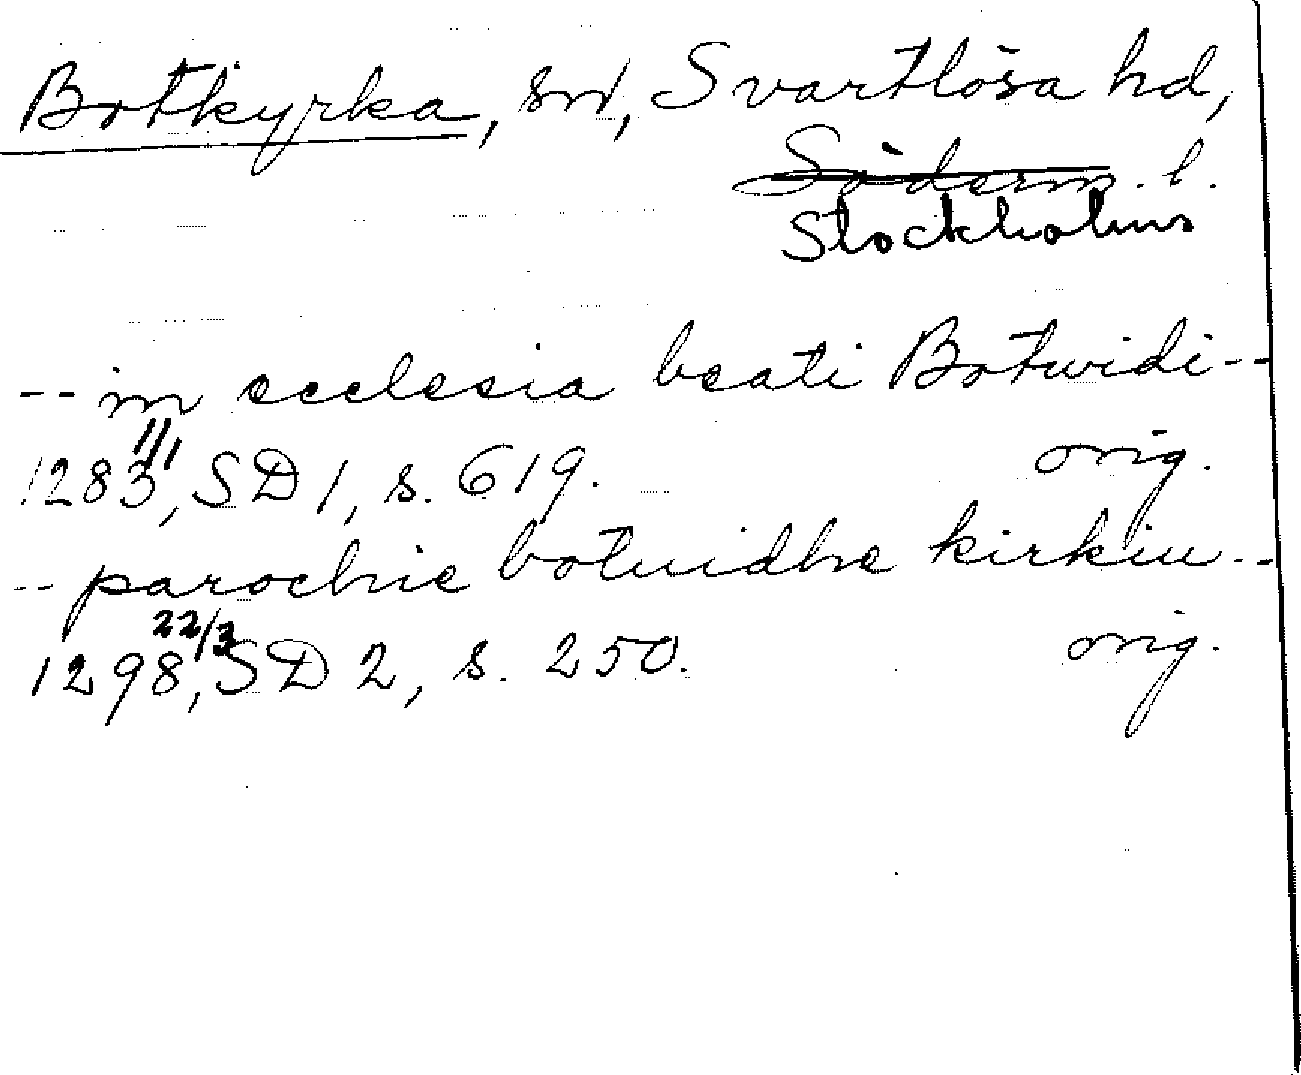 Botkyrka, sn, Svartlösa hd,
Söderm. l.
Stockholms
-- in ecclesia beati Botwidi --
1283 11/1, SD 1, s. 619. orig.
-- parochie botuidhe kirkiu --
1298 22/3, SD 2, s. 250. orig.